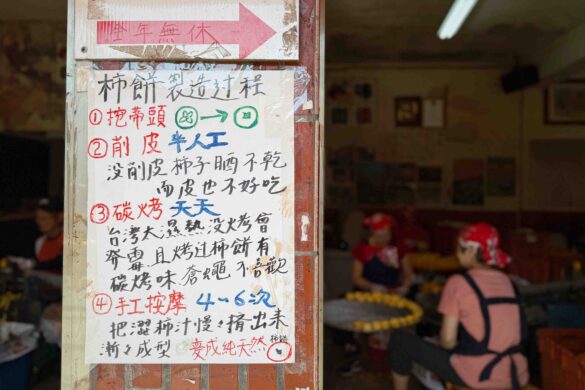 全年無休
柿餅製造过程
①挖蒂頭
②削皮 半人工
沒削皮柿子晒不乾
而皮也不好吃
③碳烤 天天
台灣太濕熱沒烤會
發霉且烤过柿餅有
碳烤味蒼蠅不喜歡
④手工按摩 4～6次
把澀柿汁慢々擠出来
漸々成型 變成純天然